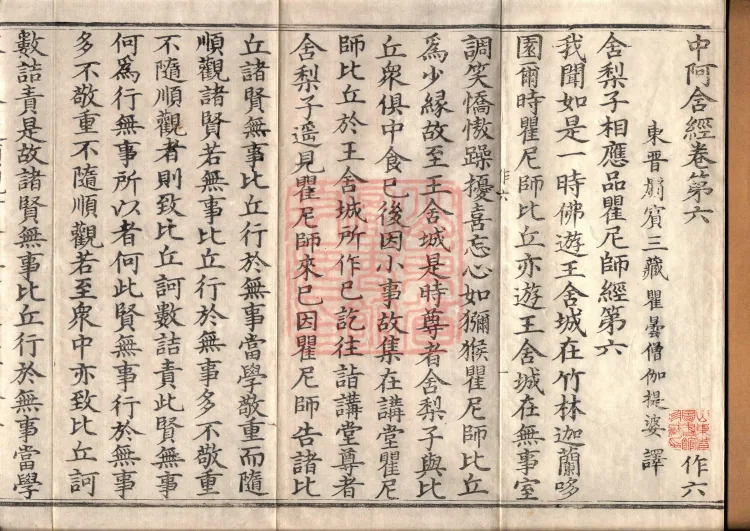 中阿含經卷第六
東晉罽賓三藏瞿曇僧伽提婆 譯 作六
舍梨子相應品瞿尼師經第六
我聞如是一時佛遊王舍城在竹林迦蘭哆
園爾時瞿尼師比丘亦遊王舍城在無事室
作六 一
調笑憍慠躁擾喜忘心如獼猴瞿尼師比丘
為少緣故至王舍城是時尊者舍梨子與比
丘衆俱中食已後因小事故集在講堂瞿尼
師比丘於王舍城所作已訖往詣講堂尊者
舍梨子遥見瞿尼師來已因瞿尼師告諸比
丘諸賢無事比丘行於無事當學敬重而隨
順觀諸賢若無事比丘行於無事多不敬重
不隨順觀者則致比丘訶數詰責此賢無事
何為行無事所以者何此賢無事行於無事
多不敬重不隨順觀若至衆中亦致比丘訶
數詰責是故諸賢無事比丘行於無事當學